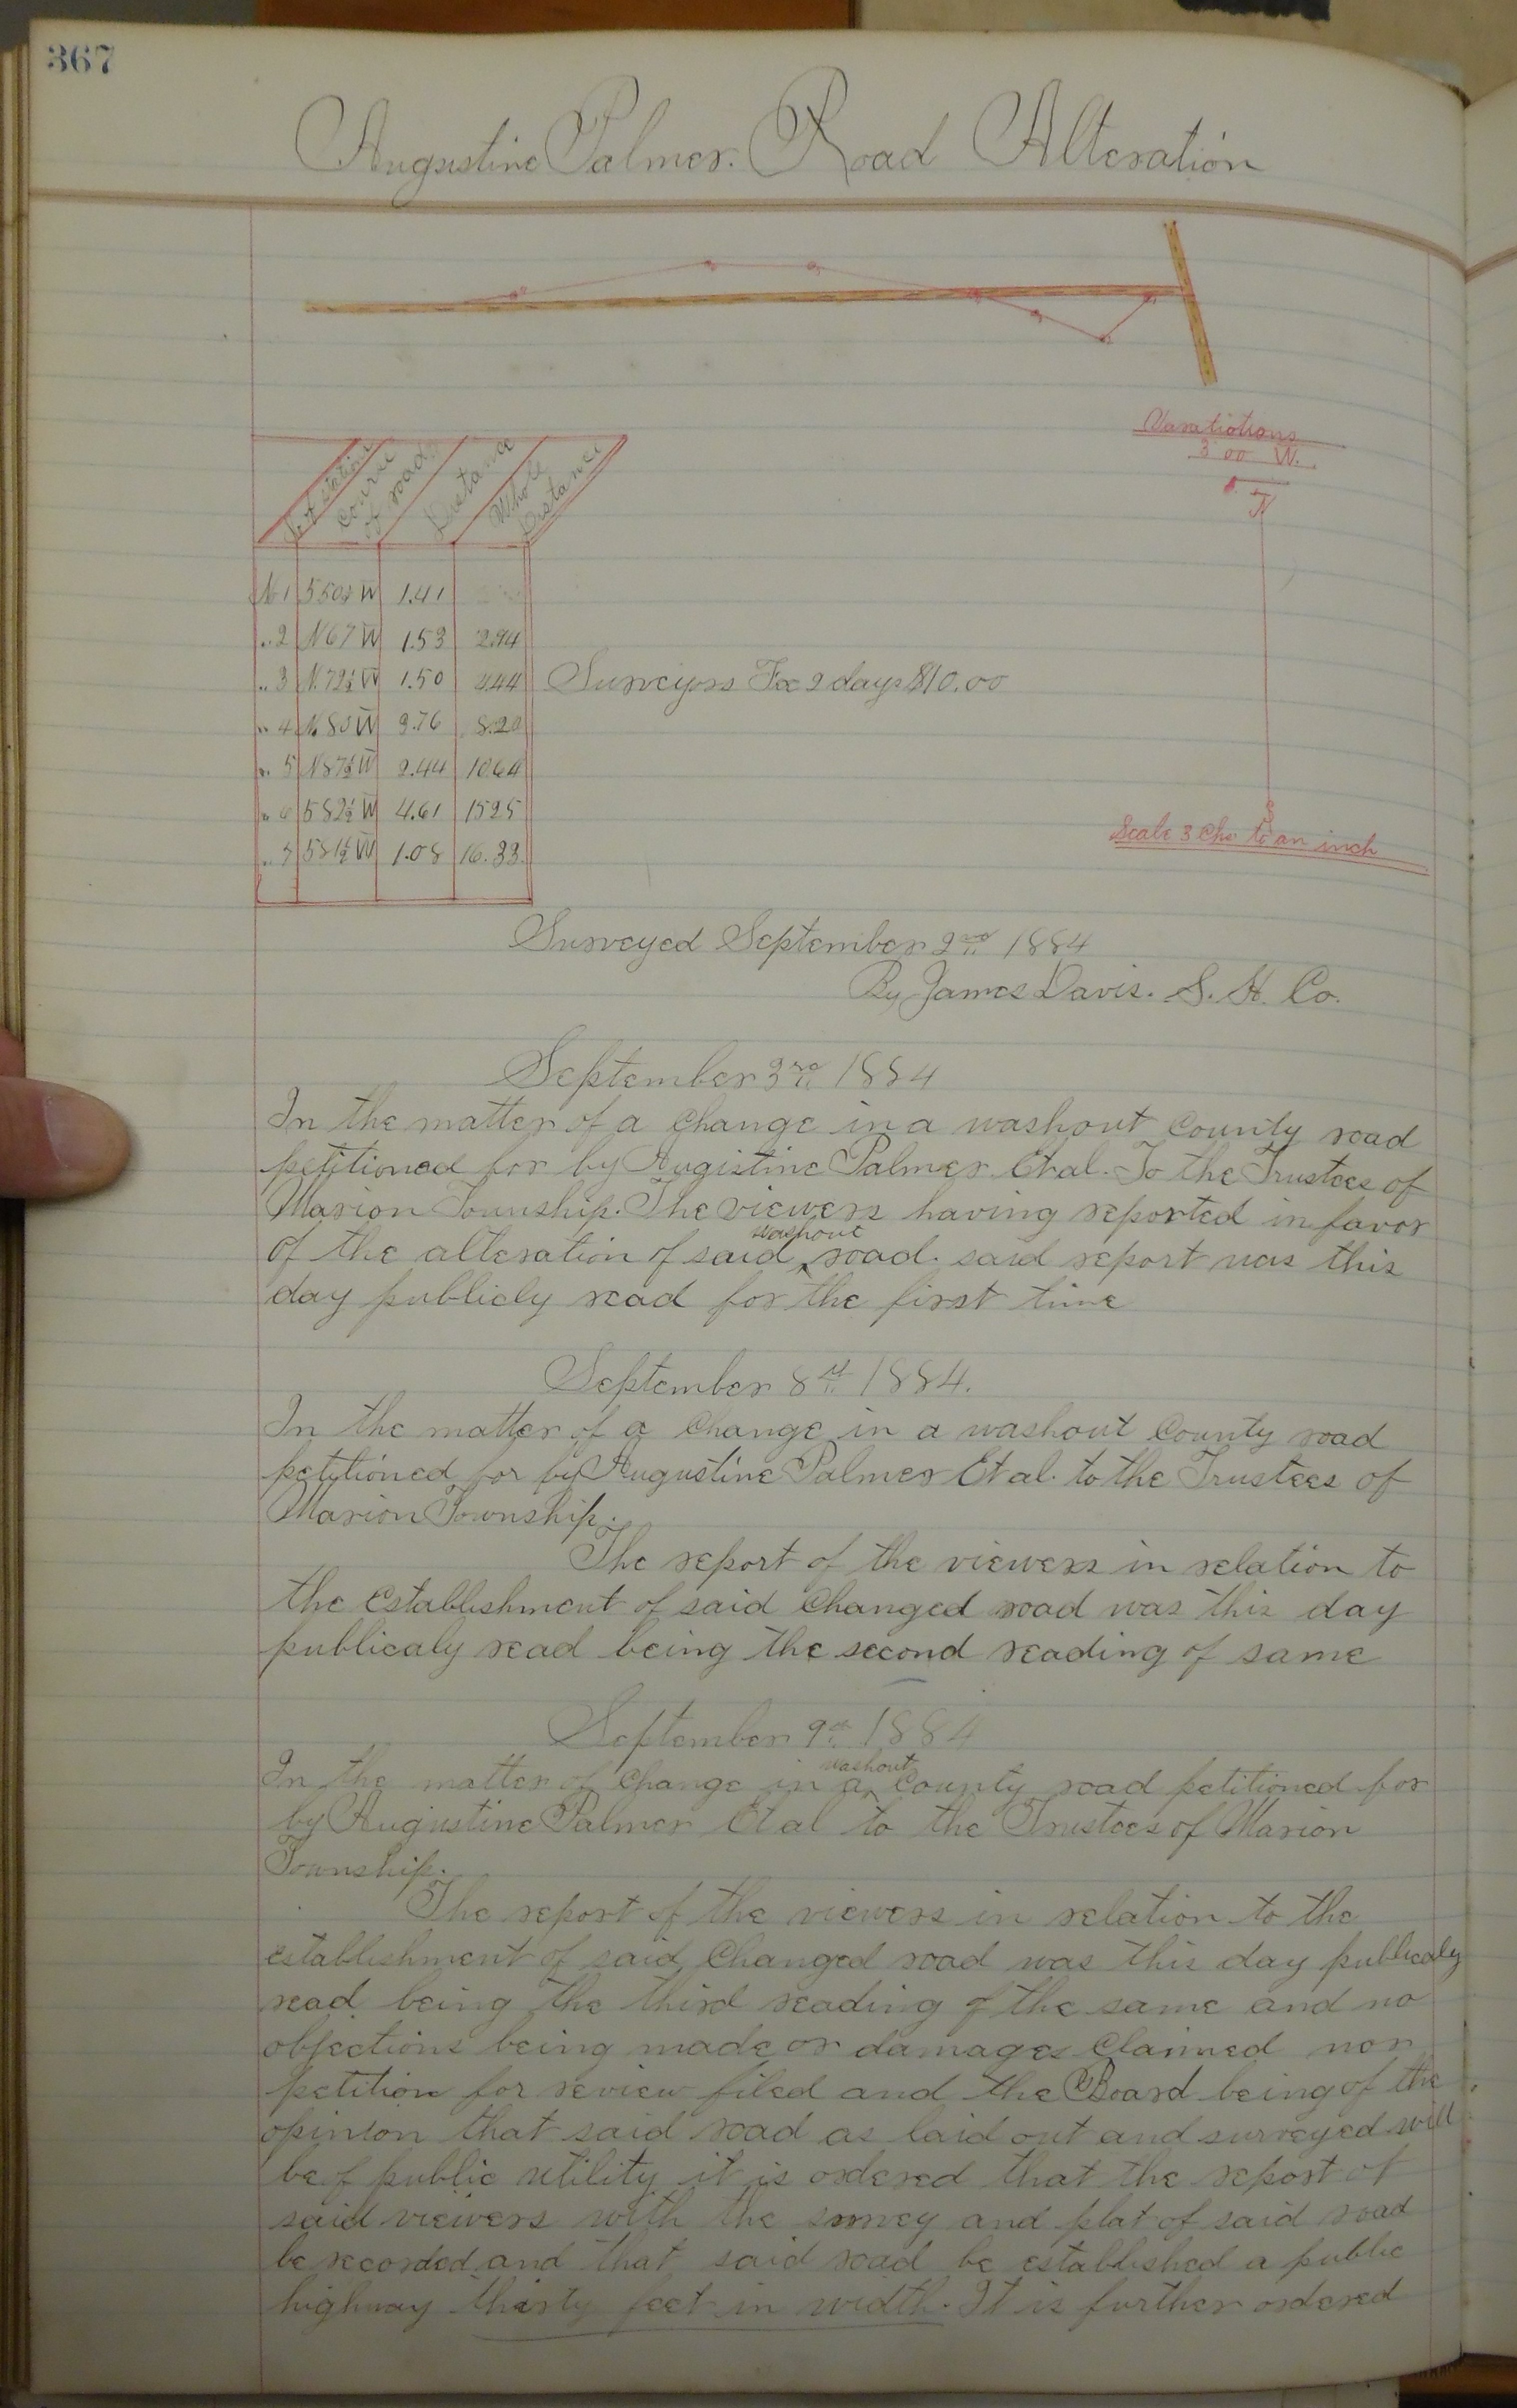 367
Augustine Palmer. Road Alteration
Variations
3 00 W.
N
No of stations
Course of roads
Distance
Whole Distance
No 1 S 50½ W 1.41
" 2 N 67 W 1.53 2.94
" 3 N. 72½ W 1.50 4.44 Surveyors Fee 2 days $10.00
" 4 N. 80 W 3.76 8.20
" 5 N 87½ W 2.44 10.64
" 6 S 82½ W 4.61 15 25
" 7 S 81½ W 1.08 16.33.
S
Scale 3 Chs to an inch
Surveyed September 2nd 1884
By James Davis. S. H. Co.
September 3rd 1884
In the matter of a Change in a washout County road
petitioned for by Augistine Palmer Et al. To the Trustees of
Marion Township. The viewers having reported in favor
of the alteration of said washout road. said report was this
day publicly read for the first time
September 8th 1884.
In the matter of a Change in a washout County road
petitioned for by Augustine Palmer Et al. to the Trustees of
Marion Township.
The report of the viewers in relation to
the Establishment of said Changed road was this day
publicaly read being the second reading of same
September 9th 1884
In the matter of Change in a washout County road petitioned for
by Augustine Palmer Et al to the Trustees of Marion
Township.
The report of the viewers in relation to the
establishment of said Changed road was this day publicaly
read being the third reading of the same and no
objections being made or damages Claimed nor
petition for review filed and the Board being of the
opinion that said road as laid out and surveyed will
be of public utility it is ordered that the report of
said viewers with the survey and plat of said road
be recorded and that said road be established a public
highway thirty feet in width. It is further ordered